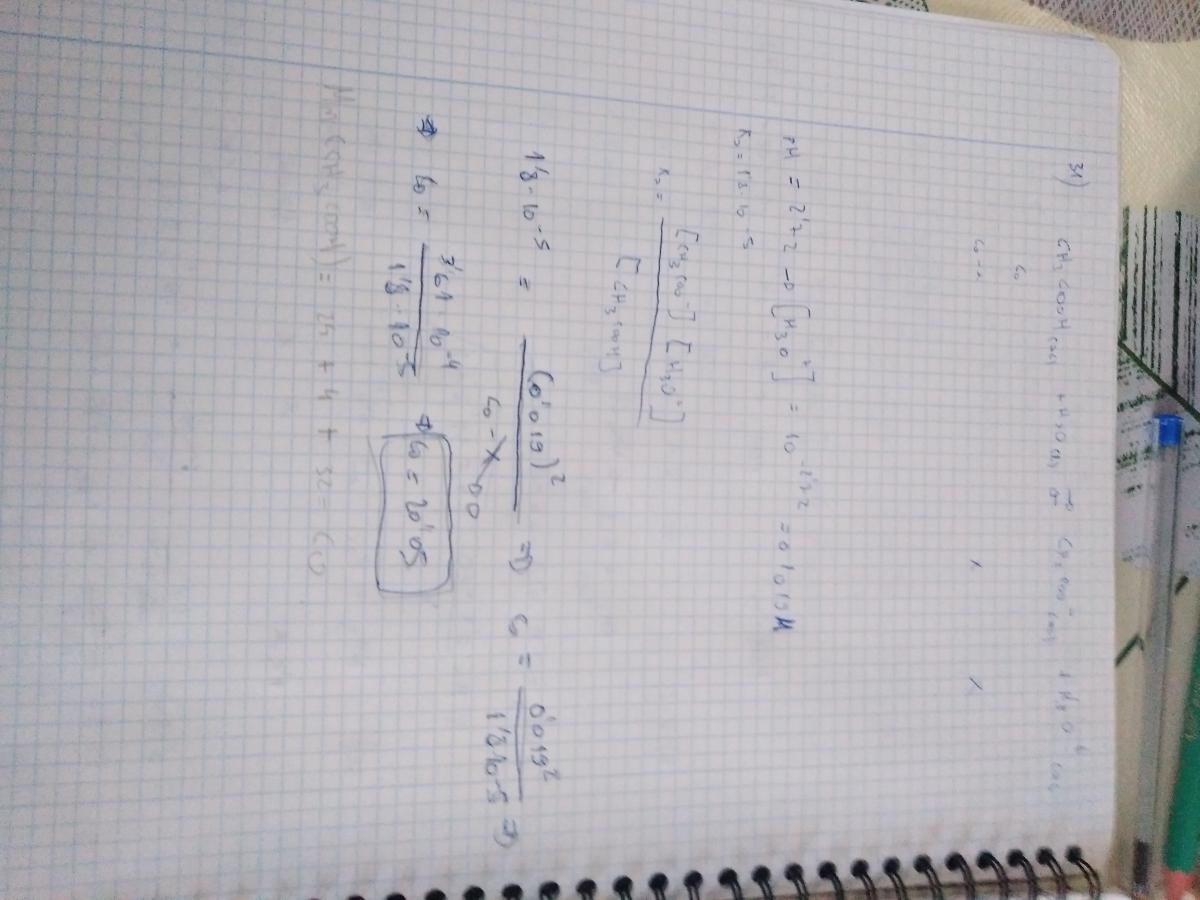 31) CH3COOH(ac) + H2O(l) ⇄ CH3COO⁻(aq) + H3O⁺(aq)
C0
C0-x x x
pH = 2'72 → [H3O⁺] = 10^-2'72 = 0'0019M
Ka = 1'8·10^-5
Ka = [CH3COO⁻] [H3O⁺]
[CH3COOH]
1'8·10^-5 = (0'0019)² / C0 - x ⇒ C0 = 0'0019² / 1'8·10^-5 ⇒
→ C0 = 3'61·10^-4 / 1'8·10^-5 → C0 = 20'05